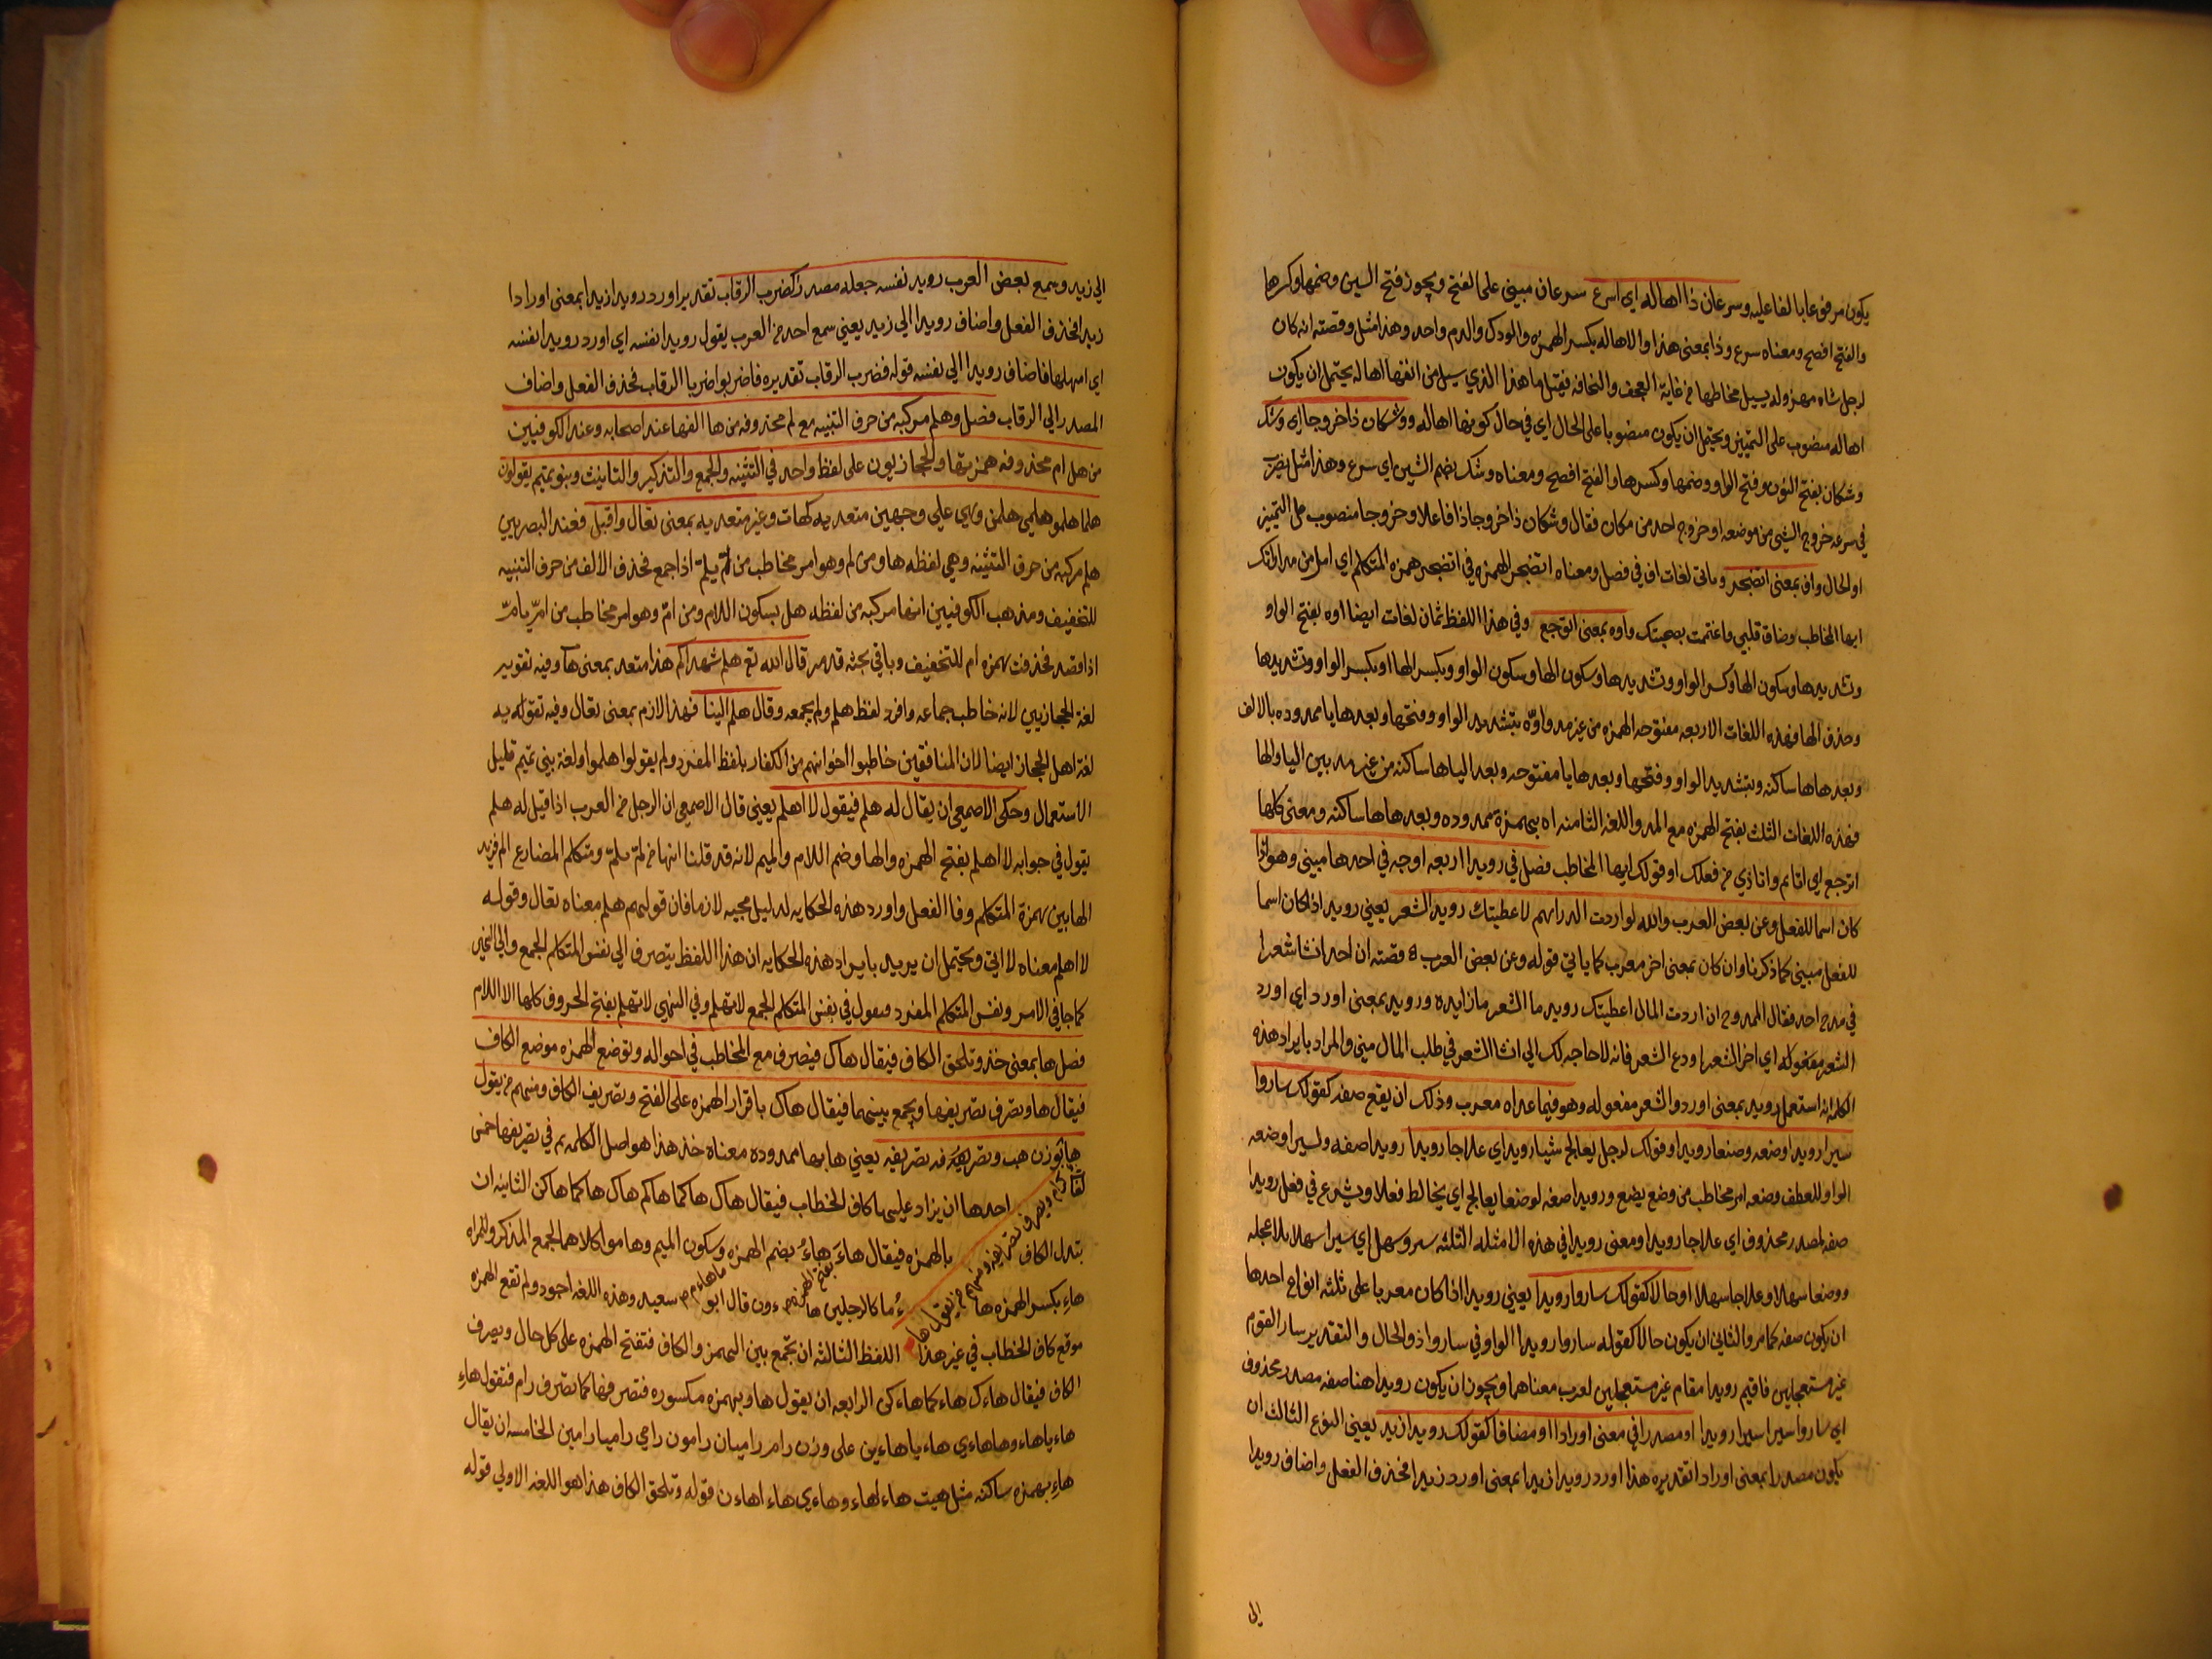 يكون مرفوعا بالفاعليه وسرعان ذا اهاله اي اسرع سرعان مبني على الفتح ويجوز فتح السين وضمها وكسرها
والفتح افصح ومعناه سرع وذا بمعنى هذا والاهاله بكسر الهمزه والودك والدسم واحد وهذا مثل وقصته انه كان
لرجل شاه مهزوله يسيل مخاطها من غاية العجف والنحافه فقيل ما هذا الذي يسيل من انفها اهاله يحتمل ان يكون
اهاله منصوب على التمييز ويحتمل ان يكون منصوبا على الحال اي في حال كونها اهاله ووشكان ذا خروجا اي وشك
وشكان بفتح النون وفتح الواو وضمها وكسرها والفتح افصح ومعناه وشك بضم الشين اي سرع وهذا مثل يضرب
في سرعه خروج الشي من موضعه او خروج احد من مكان فقال وشكان ذا خروجا ذا فاعلا وخروجا منصوب على التمييز
او الحال واف بمعنى اتضجر وياتي لغات اف في فصل ومعناه اتضجر الهمزه في اتضجر همزه المتكلم اي امل من
ايها المخاطب وضاق قلبي واغتممت بصحبتك واوه بمعنى اتوجع وفي هذا اللفظ ثمان لغات ايضا اوه بفتح الواو
وتشديدها وسكون الها وكسر الواو وتشديدها وسكون الها وسكون الواو وبكسر الها او بكسر الواو وتشديدها
وحذف الها فهذه اللغات الاربعه مفتوحه الهمزه من غير مد واوّه بتشديد الواو وفتحها وبعدها يا ممدوده بالالف
وبعدها ها ساكنه وبتشديد الواو وفتحها وبعدها يا مفتوحه وبعد الياها ساكنه من غير مد بين اليا والها
فهذه اللغات الثلث بفتح الهمزه مع المد واللغه الثامنه اه بهمزة ممدوده وبعدها ها ساكنه ومعنى كلها
اتوجع اي اتالم واتاذي من فعلك او قولك ايها المخاطب فصل في رويدا اربعه اوجه في احدها مبني وهو اذا
كان اسما للفعل وعن بعض العرب والله لو اردت الدراهم لاعطيتك رويد الشعر يعني رويد اذا كان اسما
للفعل مبني كما ذكرنا وان كان بمعنى اخر معرب كما ياتي قوله وعن بعض العرب ه قصته ان احد انشا شعرا
في مدح احد فقال الممدوح ان اردت المال اعطيتك رويد ما الشعر ما زايده ورويد بمعنى اورد اي اورد
الشعر مفعوله اي اخر الشعر او دع الشعر فانه لا حاجه لك الي انشا الشعر في طلب المال مني والمراد بايراد هذه
الكلمه انه استعمل رويد بمعنى اورد والشعر مفعوله وهو فيما عداه معرب وذلك ان يقع صفه كقولك ساروا
سيرا رويدا وضعه وضعا رويدا وقولك لرجل يعالج شيا رويدا اي علاجا رويدا رويدا صفه ولسيرا وضعه
الواو للعطف وضعه امر مخاطب من وضع يضع ورويدا صفه لوضعا يعالج اي يخالط فعلا ويشرع في فعل رويدا
صفه لمصدر محذوف اي علاجا رويدا ومعنى رويدا في هذه الامثله الثلثه سير وسهل اي سيرا سهلا بلا عجله
ووضعا سهلا وعلاجا سهلا او حالا كقولك ساروا رويدا يعني رويدا اذا كان معربا على ثلثه انواع احدها
ان يكون صفه كما مر والثاني ان يكون حالا كقوله ساروا رويدا الواو في ساروا ذو الحال والتقدير سار القوم
غير مستعجلين فاقيم رويدا مقام غير مستعجلين لعرب معناهما ويجوز ان يكون رويدا هنا صفه مصدر محذوف
اي ساروا سيرا سيرا رويدا او مصدرا في معنى اورادا او مضافا كقولك رويدا زيد يعني النوع الثالث ان
يكون مصدرا بمعنى اوراد تقديره هذا اورد رويدا زيدا بمعنى اورد زيدا فحذف الفعل واضاف رويدا
الى
الي زيد وسمع بعض العرب رويد نفسه جعله مصدرا كضرب الرقاب تقديرا ورد رويدا زيدا بمعنى اورادا
زيدا فحذف الفعل واضاف رويدا الي زيد يعني سمع احد من العرب يقول رويدا نفسه اي اورد رويدا نفسه
اي امهلها فاضاف رويدا الي نفسه قوله فضرب الرقاب تقديره فاضربوا ضربا الرقاب فحذف الفعل واضاف
المصدر الي الرقاب فصل وهلم مركبه من حرف التنبيه مع لم محذوفه من ها الفها عند اصحابه وعند الكوفيين
من هل ام محذوفه همزتها والحجازيون على لفظ واحد في التثنيه والجمع والتذكير والتانيث وبنو تميم يقولون
هلما هلموا هلمي هلمن وهي على وجهين متعديه كهات وغير متعديه بمعنى تعال واقبل فعند البصريين
هلم مركبه من حرف التثنيه وهي لفظه ها ومن لم وهو امر مخاطب من لمّ يلمّ اذا جمع فحذف الالف من حرف التنبيه
للتخفيف ومذهب الكوفيين انها مركبه من لفظه هل بسكون اللام ومن امّ وهو امر مخاطب من امّ يامّ
اذا قصد فحذفت همزه ام للتخفيف وباقي بحثه قد مر قال الله تع هلم شهداكم هذا متعد بمعنى هات وفيه تقوير
لغة الحجازيين لانه خاطب جماعه وافرد لفظ هلم ولم يجمعه وقال هلم الينا فهذا لازم بمعنى تعال وفيه تقويه
لغة اهل الحجاز ايضا لان المنافقين خاطبوا اخوانهم من الكفار بلفظ المفرد ولم يقولوا هلموا ولغة بني تميم قليل
الاستعمال وحكى الاصمعي ان يقال له هلم فيقول لا اهلم يعني قال الاصمعي ان الرجل من العرب اذا قيل له هلم
يقول في جوابه لا اهلم بفتح الهمزه والها وضم اللام والميم لانه قد قلنا انها من لمّ يلمّ ومتكلم المضارع الم فزيد
الها بين همزة المتكلم وفا الفعل واورد هذه الحكايه لدليل مجيه لازما فان قولهم هلم معناه تعال وقوله
لا اهلم معناه لا اتي ويحتمل ان يريد بايراد هذه الحكايه ان هذا اللفظ يتصرف الي نفس المتكلم الجمع والي الغير
كما جا في الامر ونفس المتكلم المفرد فيقول في نفس المتكلم الجمع لا نهلم وفي النهي لا تهلم بفتح الحروف كلها الا اللام
فصل ها بمعنى خذ وتلحق الكاف فيقال هاك فيصرف مع المخاطب في احواله وتوضع الهمزه موضع الكاف
فيقال ها وتصرف تصريفها ويجمع بينهما فيقال هاك باقرار الهمزه على الفتح وتصريف الكاف ومنهم من يقول
هابوزن هب وتصرفه تصريفه يعني ها بها ممدوده معناه خذ هذا هو اصل الكلمه ثم في تصريفها خمس
لغات احدها ان يزاد عليها كاف الخطاب فيقال هاك هاكما هاكم هاك هاكما هاكن الثانيه ان
تبدل الكاف بالهمزه فيقال هاءَ هاءُ بضم الهمزه وسكون الميم وهاموا كلاهما لجمع المذكر وللمراه
هاءِ بكسر الهمزه ها ؤما كالرجلين هاءون قال ابو سعيد وهذه اللغه اجود ولم تقع الهمزه
موقع كاف الخطاب في غير هذا اللفظ الثالثه ان تجمع بين الهمز والكاف فتفتح الهمزه على كل حال ويصرف
الكاف فيقال هاءك هاءكما هاءكن الرابعه ان يقول هاء بهمزه مكسوره فتصرفها كما تصرف رام فتقول هاءِ
هاءيا هاءوا هاءي هاءيا هاءين على وزن رام راميان رامون رامي راميا رامين الخامسه ان يقال
هاء بهمزه ساكنه مثل هبت هاء اهاء وهاءي هاء اهاءن قوله وتلحق الكاف هذا هو اللغه الاولي قوله